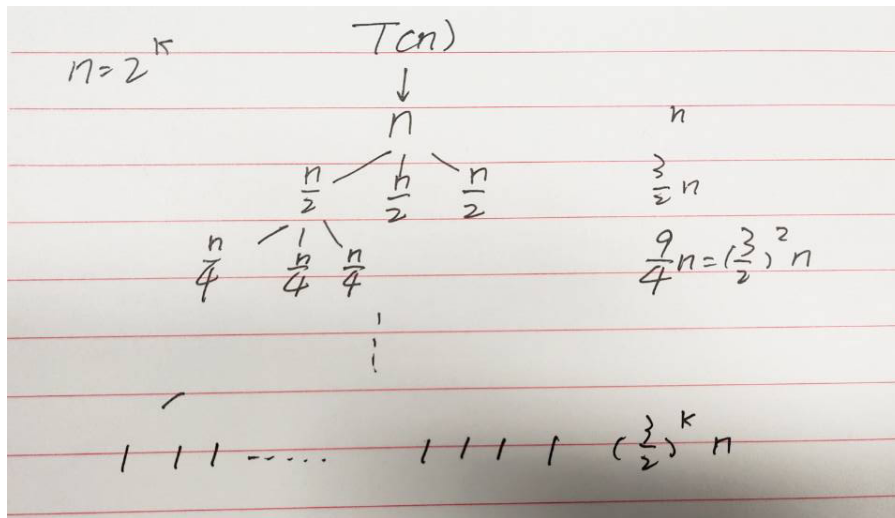 T(n)
n = 2^k
n n
n/2 n/2 n/2 3/2 n
n/4 n/4 n/4 9/4 n = (3/2)^2 n
1 1 1 ..... 1 1 1 1 (3/2)^k n